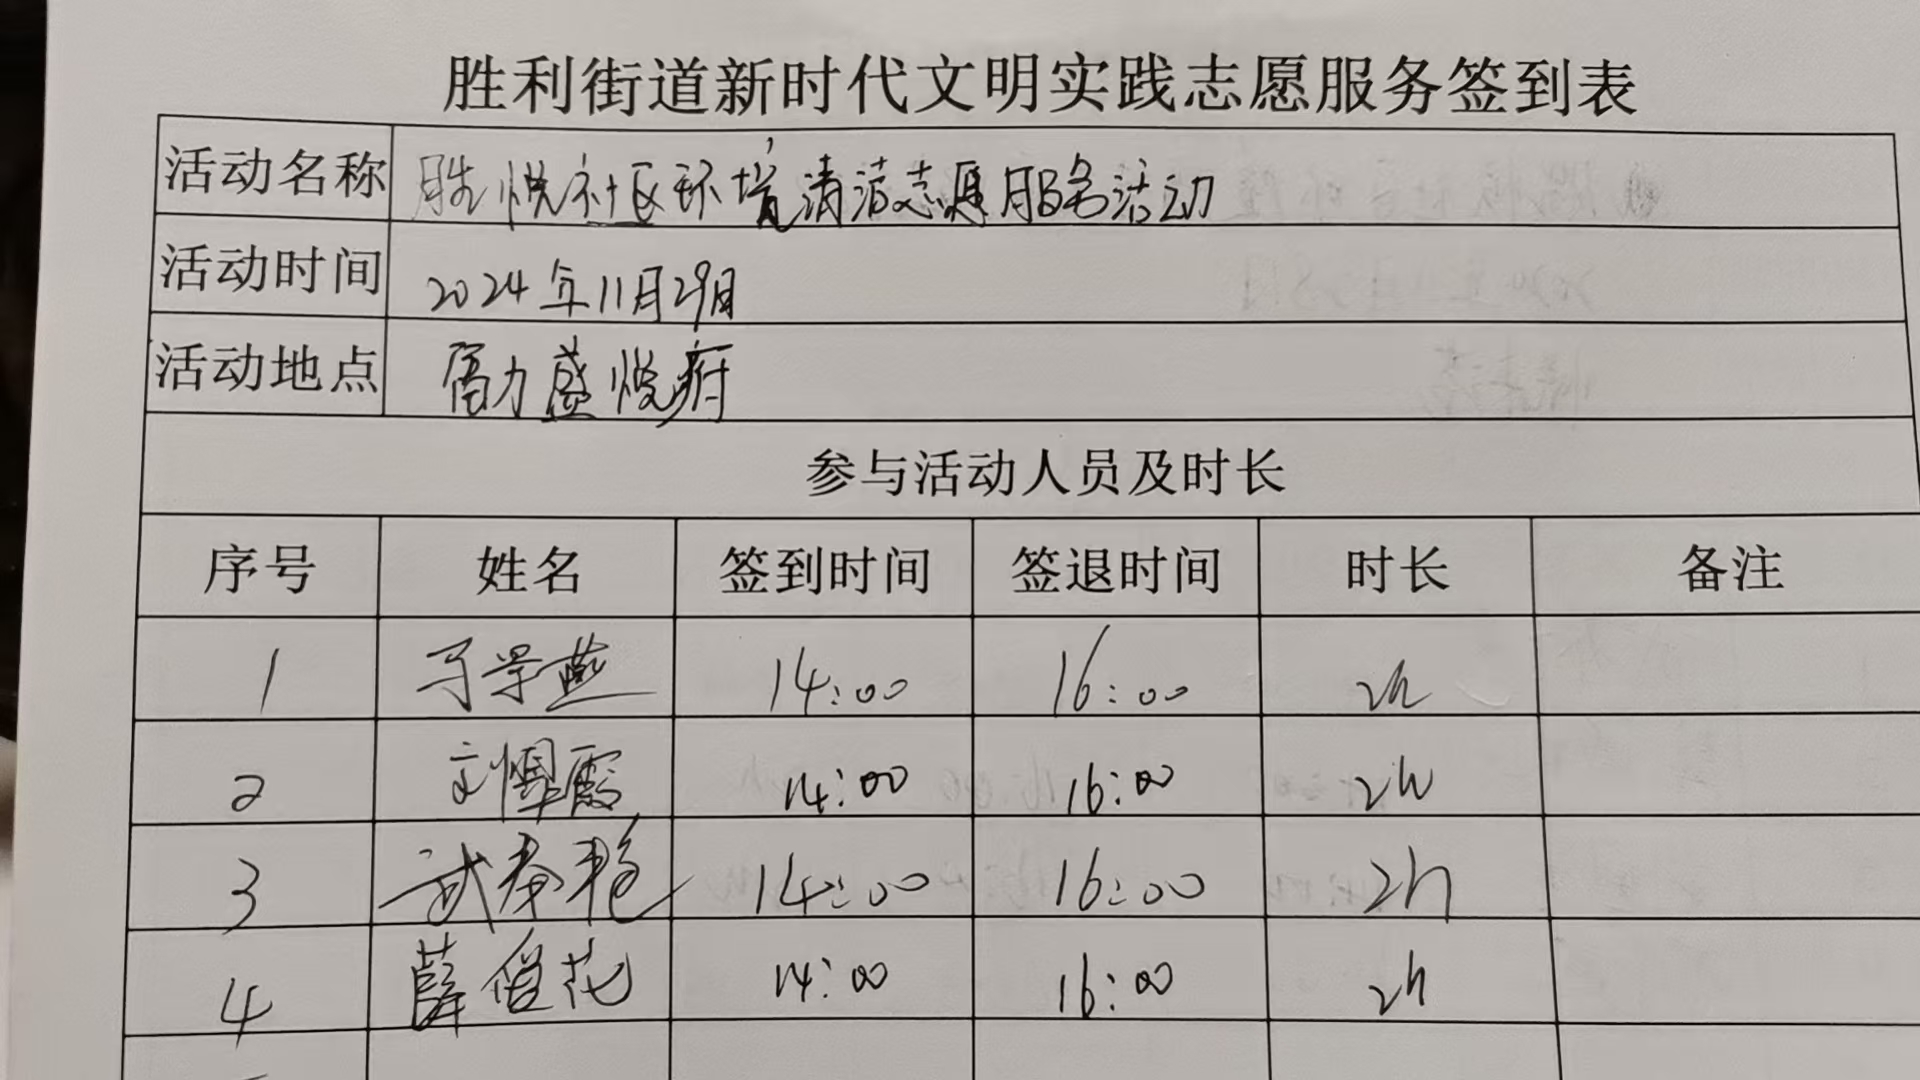 胜利街道新时代文明实践志愿服务签到表
活动名称 胜悦社区环境清洁志愿服务活动
活动时间 2024年11月29日
活动地点 富力盛悦府
参与活动人员及时长
序号 姓名 签到时间 签退时间 时长 备注
1 于学燕 14:00 16:00 2h
2 刘惺霞 14:00 16:00 2h
3 武春艳 14:00 16:00 2h
4 薛俊花 14:00 16:00 2h